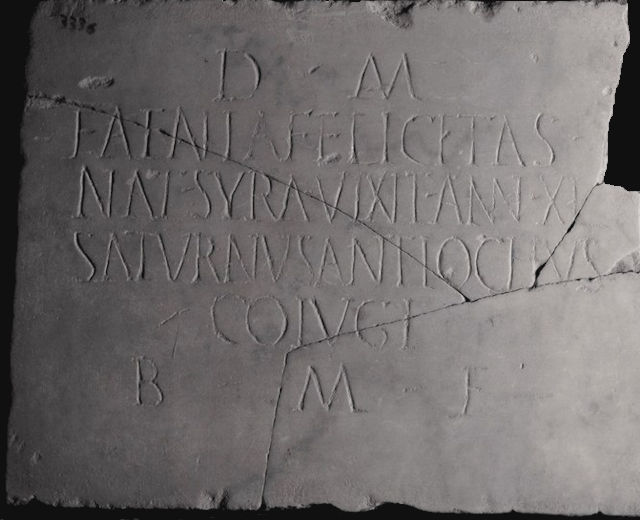 3336
D · M
FATNIA FELICITAS
NAT·SYRA·VIXIT·ANN·XI
SATVRNVS ANTIOCHVS
COIVGI
B · M · F